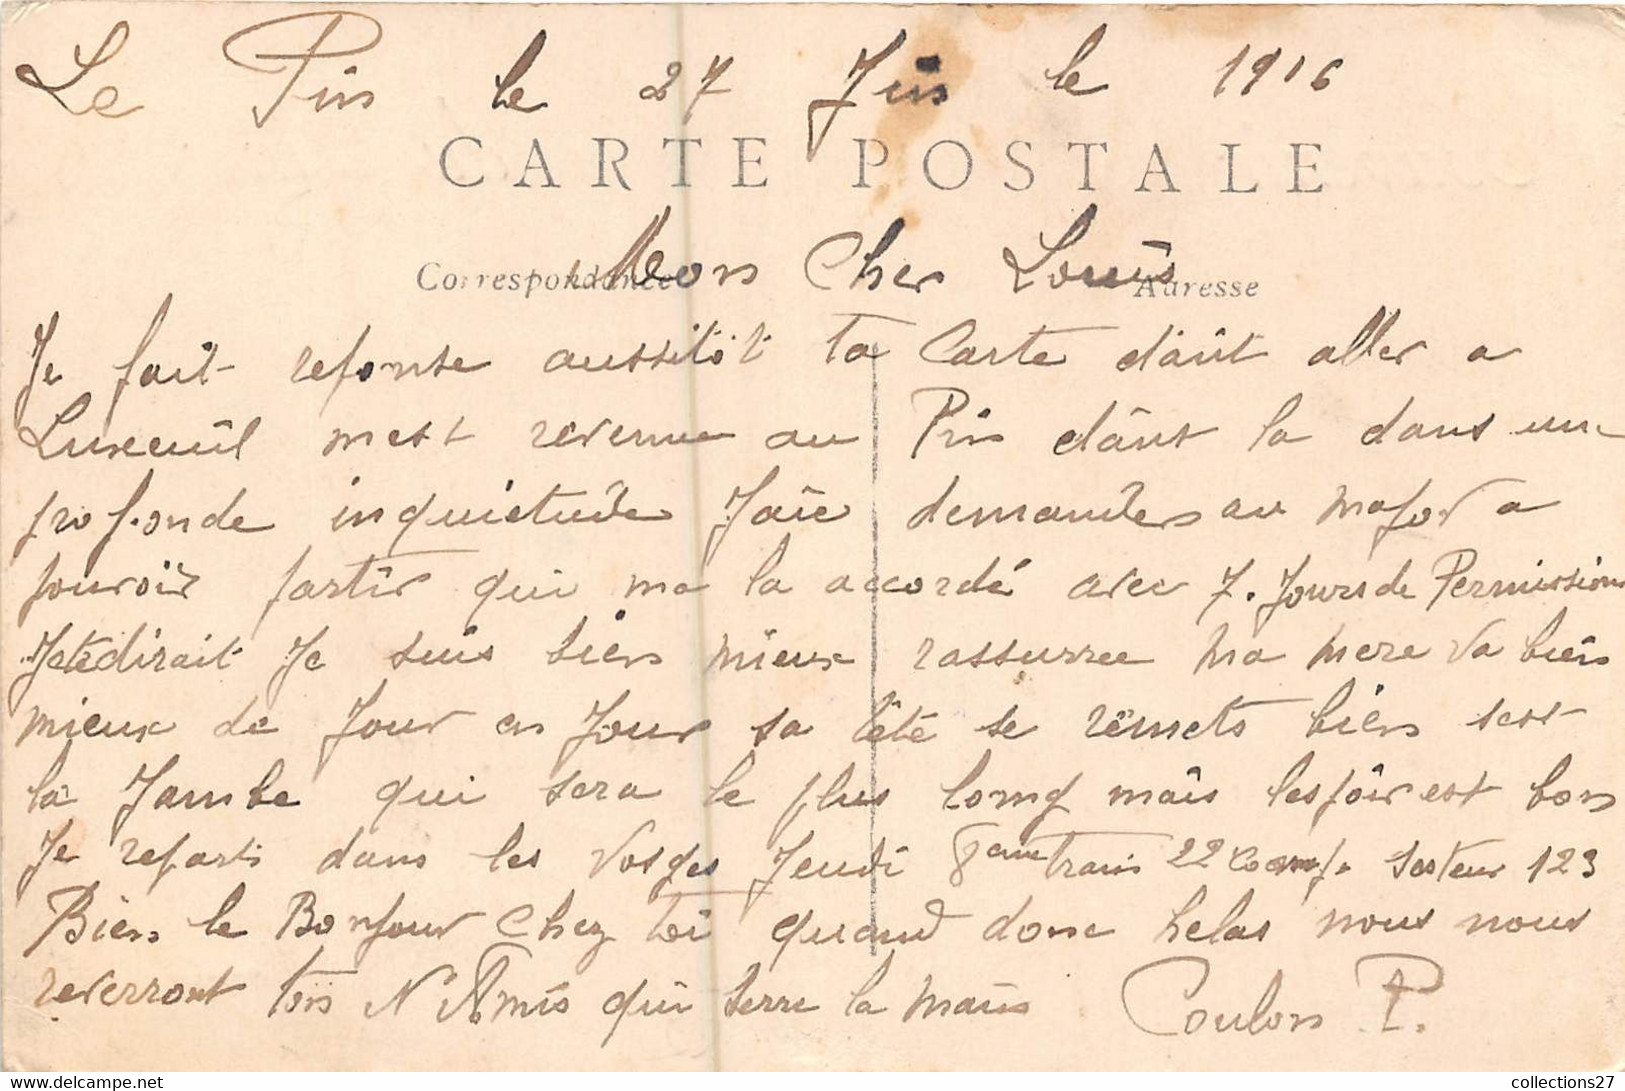 Le Pin le 27 Juin le 1916
CARTE POSTALE
Correspondance Adresse
Mon Cher Louis
Je fait reponse aussitôt ta Carte dâût aller a
Luxeuil mest revenue au Pin dâût la dans une
profonde inquietude Jaie demander au major a
pouvoir partir qui ma la accordé avec 7. Jours de Permission
Jetedirait Je suis bien mieux rassurree ma mere va bien
mieux de Jour en Jour sa tête se remets bien sest
la Jambe qui sera le plus long mais lespoir est bon
Je reparts dans les Vosges Jeudi 8eme train 22 Comp. Secteur 123
Bien le Bonjour Chez toi quand donc helas nous nous
reverront ton Amis qui serre la main Coulon P.
collections27